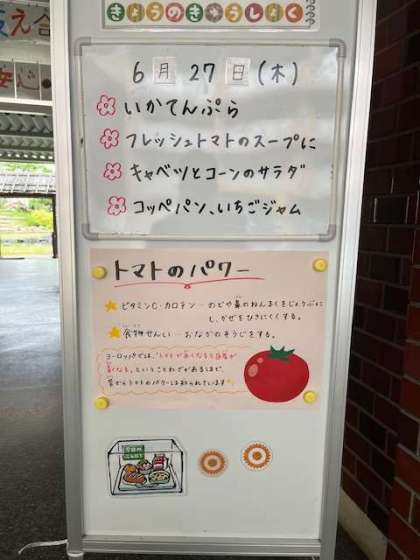 きょうのきゅうしょく
6月27日(木)
いかてんぷら
フレッシュトマトのスープに
キャベツとコーンのサラダ
コッペパン、いちごジャム
トマトのパワー
ビタミンC・カロテン…のどや鼻のねんまくをじょうぶにし、かぜをひきにくくする。
食物せんい…おなかのそうじをする。
ヨーロッパでは、「トマトが赤くなると医者が
青くなる」ということわざがあるほど、
昔からトマトのパワーは知られています